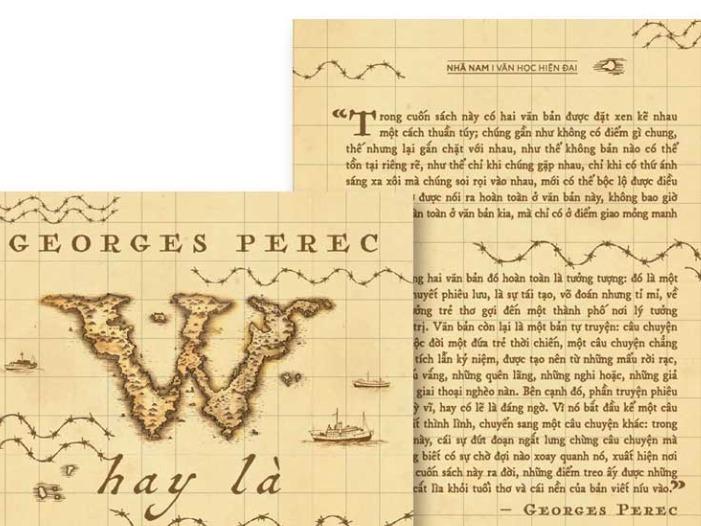 NHÃ NAM | VĂN HỌC HIỆN ĐẠI
“Trong cuốn sách này có hai văn bản được đặt xen kẽ nhau
một cách thuần túy; chúng gần như không có điểm gì chung,
thế nhưng lại gắn chặt với nhau, như thể không bản nào có thể
tồn tại riêng rẽ, như thể chỉ khi chúng gặp nhau, chỉ khi có thứ ánh
sáng xa xôi mà chúng soi rọi vào nhau, mới có thể bộc lộ được điều
được nói ra hoàn toàn ở văn bản này, không bao giờ
toàn ở văn bản kia, mà chỉ có ở điểm giao mỏng manh
hai văn bản đó hoàn toàn là tưởng tượng: đó là một
phiêu lưu, là sự tái tạo, võ đoán nhưng tỉ mỉ, về
trẻ thơ gợi đến một thành phố nơi lý tưởng
trị. Văn bản còn lại là một bản tự truyện: câu chuyện
đời một đứa trẻ thời chiến, một câu chuyện chẳng
tích lẫn kỷ niệm, được tạo nên từ những mẩu rời rạc,
vắng, những quên lãng, những nghi hoặc, những giả
giai thoại nghèo nàn. Bên cạnh đó, phần truyện phiêu
vĩ, hay có lẽ là đáng ngờ. Vì nó bắt đầu kể một câu
thình lình, chuyển sang một câu chuyện khác: trong
này, cái sự đứt đoạn ngắt lưng chừng câu chuyện mà
biết có sự chờ đợi nào xoay quanh nó, xuất hiện nơi
cuốn sách này ra đời, những điểm treo ấy được những
lìa khỏi tuổi thơ và cái nền của bản viết níu vào.”
— GEORGES PEREC
GEORGES PEREC
W
hay là